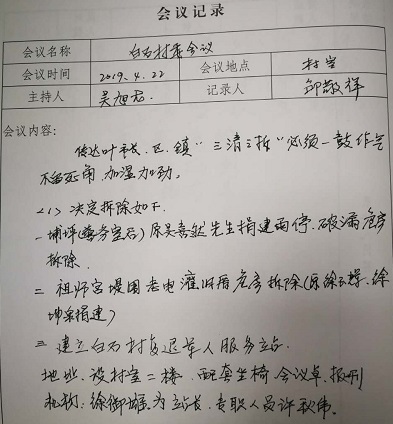 会议记录
会议名称 白石村委会议
会议时间 2019.4.22 会议地点 村室
主持人 吴旭龙 记录人 邱敬祥
会议内容:
传达叶书、区、镇“三清三拆”必须一鼓作气
不留死角,加温加劲。
<1> 决定拆除如下
一 埔坪(警务室后)原吴喜然先生捐建雨亭、破漏危房
拆除.
二 祖师宫堤围老电灌旧厝危房拆除(原徐、徐
坤捐建)
三 建立白石村复退军人服务立站.
地址、设村室二楼、配套坐椅会议桌、报刊
机构:徐御雄为站长、专职人员许秋伟。